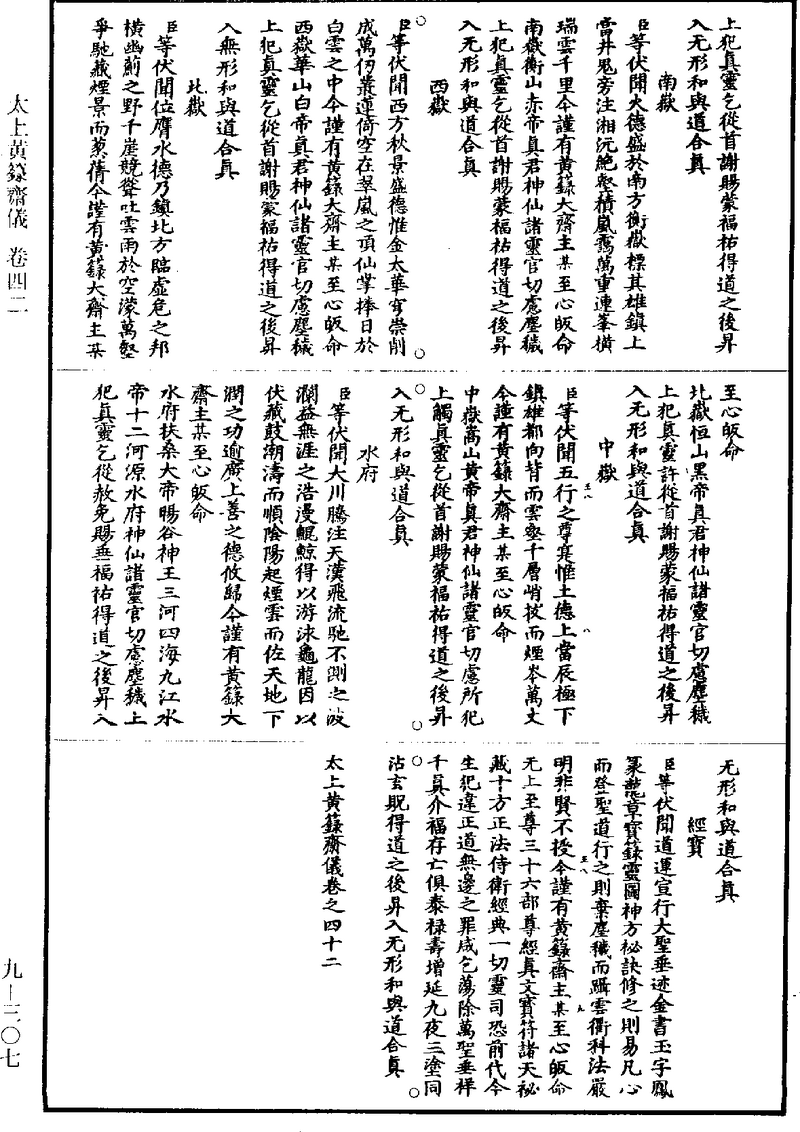 上犯真靈乞從首謝賜蒙福祐得道之後昇
入无形和與道合真
南嶽
臣等伏聞大德盛於南方衡嶽標其雄鎮上
當井鬼旁注湘沅絶壑積嵐靄萬重連峯橫
瑞雲千里今謹有黃籙大齋主某至心皈命
南嶽衡山赤帝真君神仙諸靈官切慮塵穢
上犯真靈乞從首謝賜蒙福祐得道之後昇
入无形和與道合真
西嶽
臣等伏聞西方秋景盛德惟金太華穹崇削
成萬仞叢蓮倚空在翠嵐之頂仙掌捧日於
白雲之中今謹有黃籙大齋主某至心皈命
西嶽華山白帝真君神仙諸靈官切慮塵穢
上犯真靈乞從首謝賜蒙福祐得道之後昇
入無形和與道合真
北嶽
臣等伏聞位膺水德乃鎮北方臨虛危之邦
橫幽薊之野千崖競聳吐雲雨於空濛萬壑
爭馳藏煙景而葱蒨今謹有黃籙大齋主某
至心皈命
北嶽恒山黑帝真君神仙諸靈官切慮塵穢
上犯真靈許從首謝賜蒙福祐得道之後昇
入无形和與道合真
中嶽
臣等伏聞五行之尊寔惟土德上當辰極下
鎮雄都向背而雲壑千層峭拔而煙岑萬丈
今謹有黃籙大齋主某至心皈命
中嶽嵩山黃帝真君神仙諸靈官切慮所犯
上觸真靈乞從首謝賜蒙福祐得道之後昇
入无形和與道合真
水府
臣等伏聞大川騰注天漢飛流馳不測之波
瀾益無涯之浩漫鯤鯨得以游泳龜龍因以
伏藏鼓潮濤而順陰陽起煙雲而佐天地下
潤之功逾廣上善之德攸歸今謹有黃籙大
齋主某至心皈命
水府扶桑大帝暘谷神王三河四海九江水
帝十二河源水府神仙諸靈官切慮塵穢上
犯真靈乞從赦免賜垂福祐得道之後昇入
无形和與道合真
經寶
臣等伏聞道運宣行大聖垂迹金書玉字鳳
篆龍章寶籙靈圖神方祕訣修之則易凡心
而登聖道行之則棄塵穢而躡雲衢科法嚴
明非賢不授今謹有黃籙齋主某至心皈命
无上至尊三十六部尊經真文寶符諸天祕
藏十方正法侍衛經典一切靈司恐前代今
生犯違正道無邊之罪咸乞蕩除萬聖垂祥
千真介福存亡俱泰禄壽增延九夜三塗同
沾玄貺得道之後昇入无形和與道合真
太上黃籙齋儀卷之四十二
太上黃籙齋儀 卷四二
九—三〇七